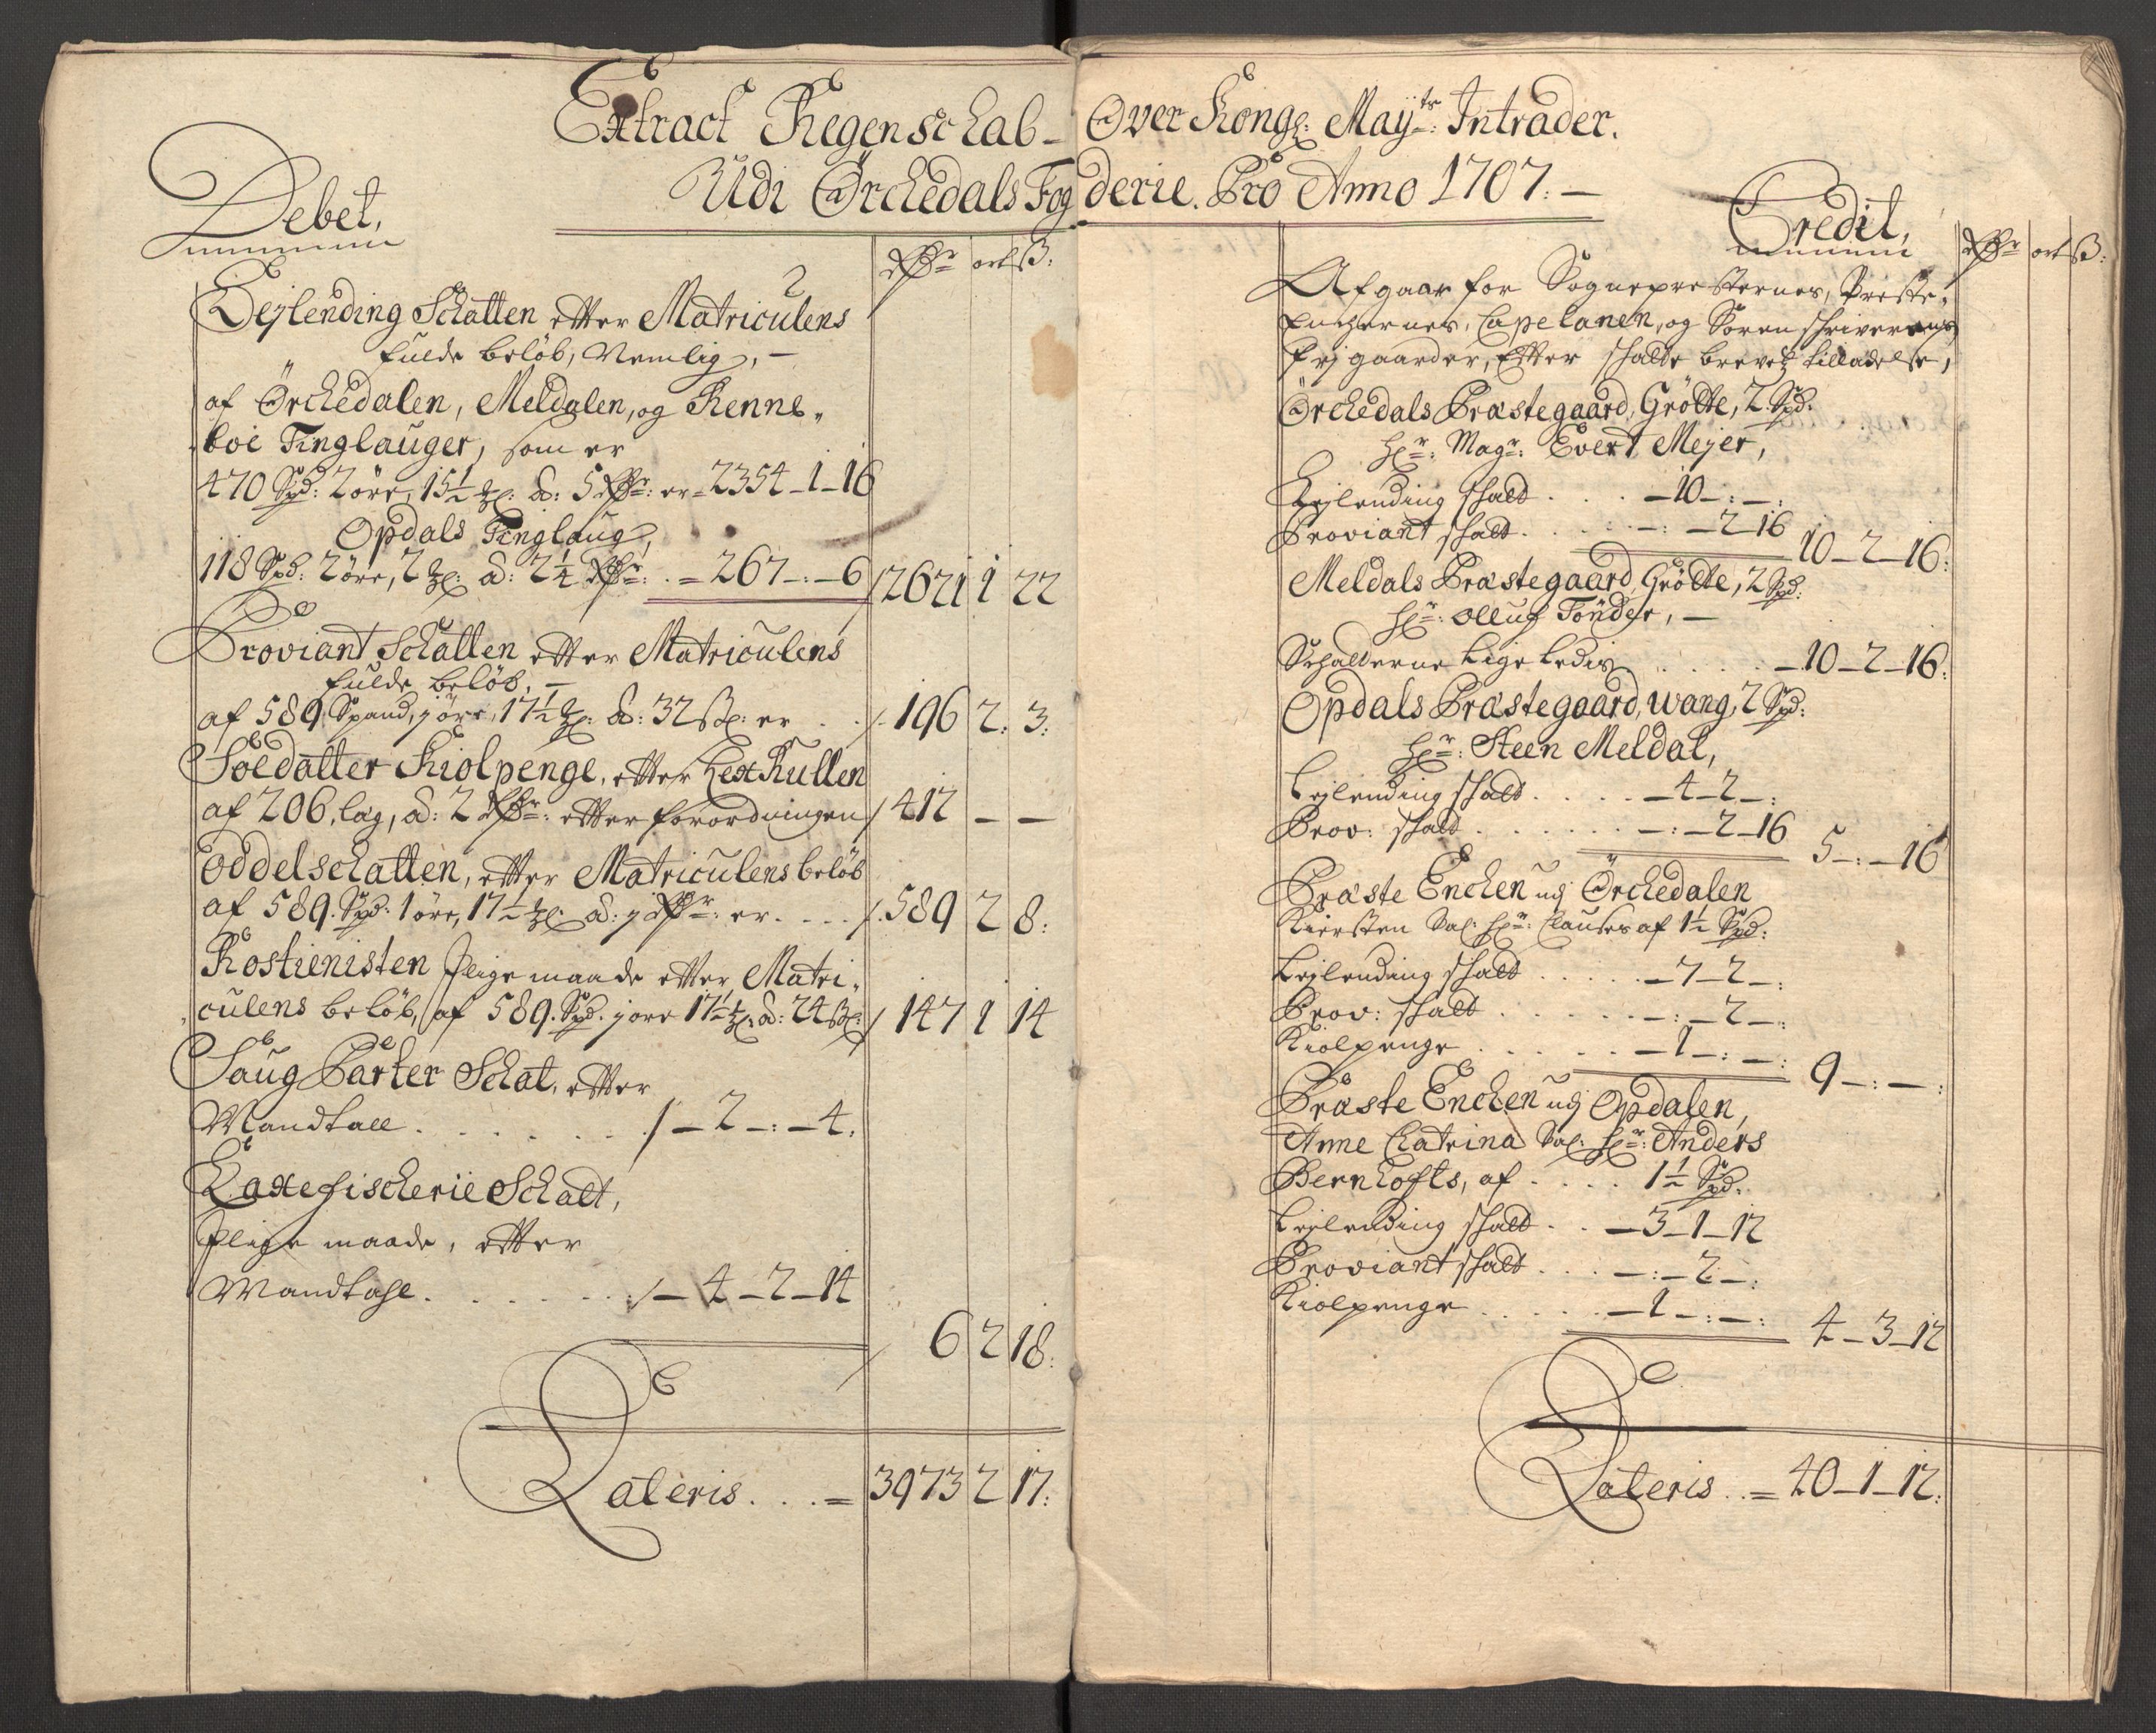 Extract Regenschab- Over Kongl: Mayts: Intrader.
Udi Ørchedals Fogderie. Pro Anno 1707:-
Debet,
Rdr ort ß:
Leylending Schatten effter Matriculens
fulde beløb, Nemlig,-
af Ørchedalen, Meldalen, og Renne-
boe Tinglauger, som er
470 Spd: 2 öre, 15½ ℳl: a: 5 Rdr: er = 2354-1-16
Opdals Tinglaug,
118 Spd: 2 öre, 2 ℳl: a: 2¼ Rdr: . = 267-:-6 / 2621 1 22
Proviant Schatten effter Matriculens
fulde beløb,-
af 589 Spand, j öre, 17½ ℳl: a: 32 ßl: er . . / 196 2. 3:
Soldatter Kiolpenge, effter LexRullen
af 206, lag, a: 2 Rdr: effter forordningen / 412 - -
Oddelschatten, effter Matriculens beløb
af 589. Spd: 1 öre, 17½ ℳl: a: j Rdr: er. . . . /. 589 2 8:
Rostienisten Jlige maade effter Matri-
culens beløb, af 589. Spd. j öre 17½ ℳl: a: 24 ßl: / 147 1 14
Saug Parter Schat, effter
Mandtall . . . . . . /-2-:-4.
Laxefischerie Schatt,
Jlige maade, effter
Mandtahl. . . . . . /-4-2-14
6 2 18:
Lateris. . . . = 3973 2 17:
Credit,
Rdr ort ß:
Afgaar for Sognepresternes, Preste-
Enchernes, Capelanen, og Sorenschriverens
frj gaarder, Effter schatte brevetz tilladelse,
Ørchedals Præstegaard, Grötte, 2. Spd:
Hr: Magr: Evert Mejer,
Leylending schatt . . . -10-:-:
Proviant schatt. . . . -:-2-16 10-2-16:
Meldals Præstegaard, Grötte, 2 Spd:
Hr: Olluf Tönder,-
Schatterne lige ledis . . . . . -10-2-16:
Opdals Præstegaard, Wang, 2 Spd:
Hr: Steen Meldal,
Leylending schatt. . . . . -4-2-:
Prov: schatt . . . . . . -:-2-16 5-:-16
Præste Enchen udj Ørchedalen
Kiersten Sal: Hr: Clauses af 1½ Spd:
Leylending schatt . . . . . -7-2-:
Prov: schatt . . . . . . -:-2-:
Kiolpenge . . . . . . -1-:-: 9-:-:
Præste Enchen udj Opdalen,
Anne Chatrina Sal: Hr: Anders
Bernhofts, af . . . . 1½ Spd.
Leylending schatt . . -3-1-12
Proviant schatt . . . -:-2-:
Kiolpenge . . . . . -1-:-: 4-3-12
Lateris . . = 40-1-12: